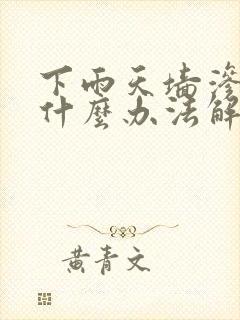 下雨天墙滲
什麼办法解
黄青文